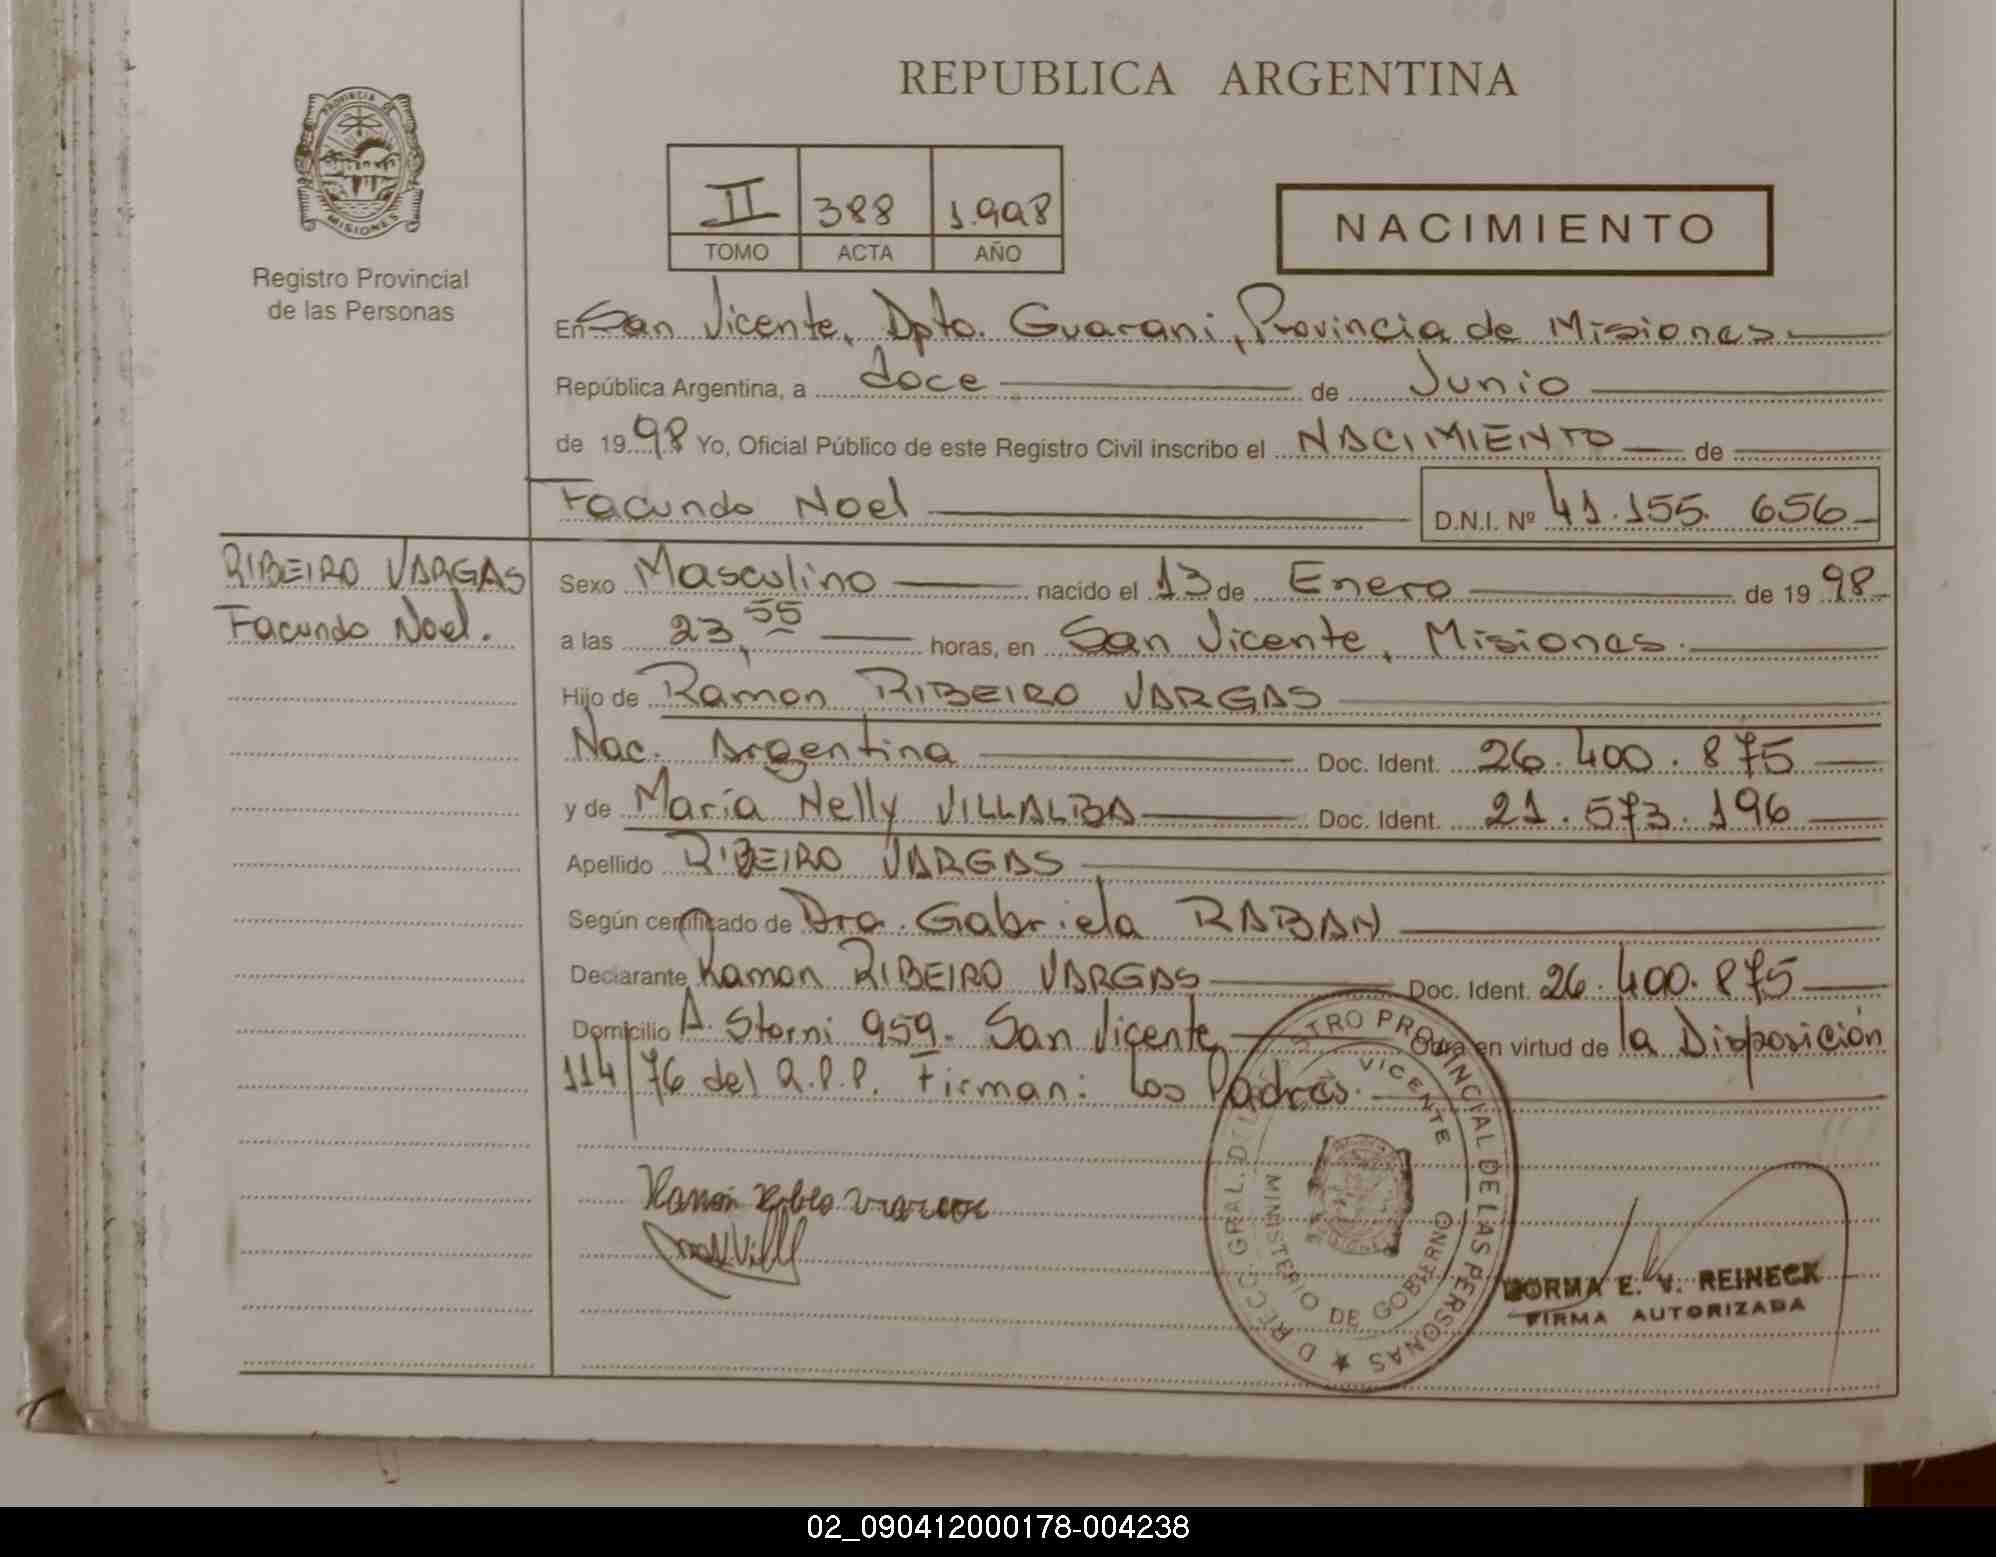 REPUBLICA ARGENTINA
PROVINCIA DE
MISIONES
Registro Provincial
de las Personas
II 388 1.998
TOMO ACTA AÑO
NACIMIENTO
En San Vicente, Dpto. Guarani, Provincia de Misiones
República Argentina, a doce de Junio
de 19 98 Yo, Oficial Público de este Registro Civil inscribo el NACIMIENTO de
Facundo Noel D.N.I. Nº 41.155.656
RIBEIRO VARGAS
Facundo Noel.
Sexo Masculino nacido el 13 de Enero de 19 98
a las 23,55 horas, en San Vicente, Misiones.
Hijo de Ramon RIBEIRO VARGAS
Nac. Argentina Doc. Ident. 26.400.875
y de María Nelly VILLALBA Doc. Ident. 21.573.196
Apellido RIBEIRO VARGAS
Según certificado de Dra. Gabriela RABAN
Declarante Ramon RIBEIRO VARGAS Doc. Ident. 26.400.875
Domicilio A. Storni 959. San Vicente Obra en virtud de la Disposición
114/76 del R.P.P. Firman: Los Padres.
VICENTE
MINISTERIO DE GOBIERNO
PROVINCIAL DE LAS PERSONAS
NORMA E. V. REINECK
FIRMA AUTORIZADA
02_090412000178-004238